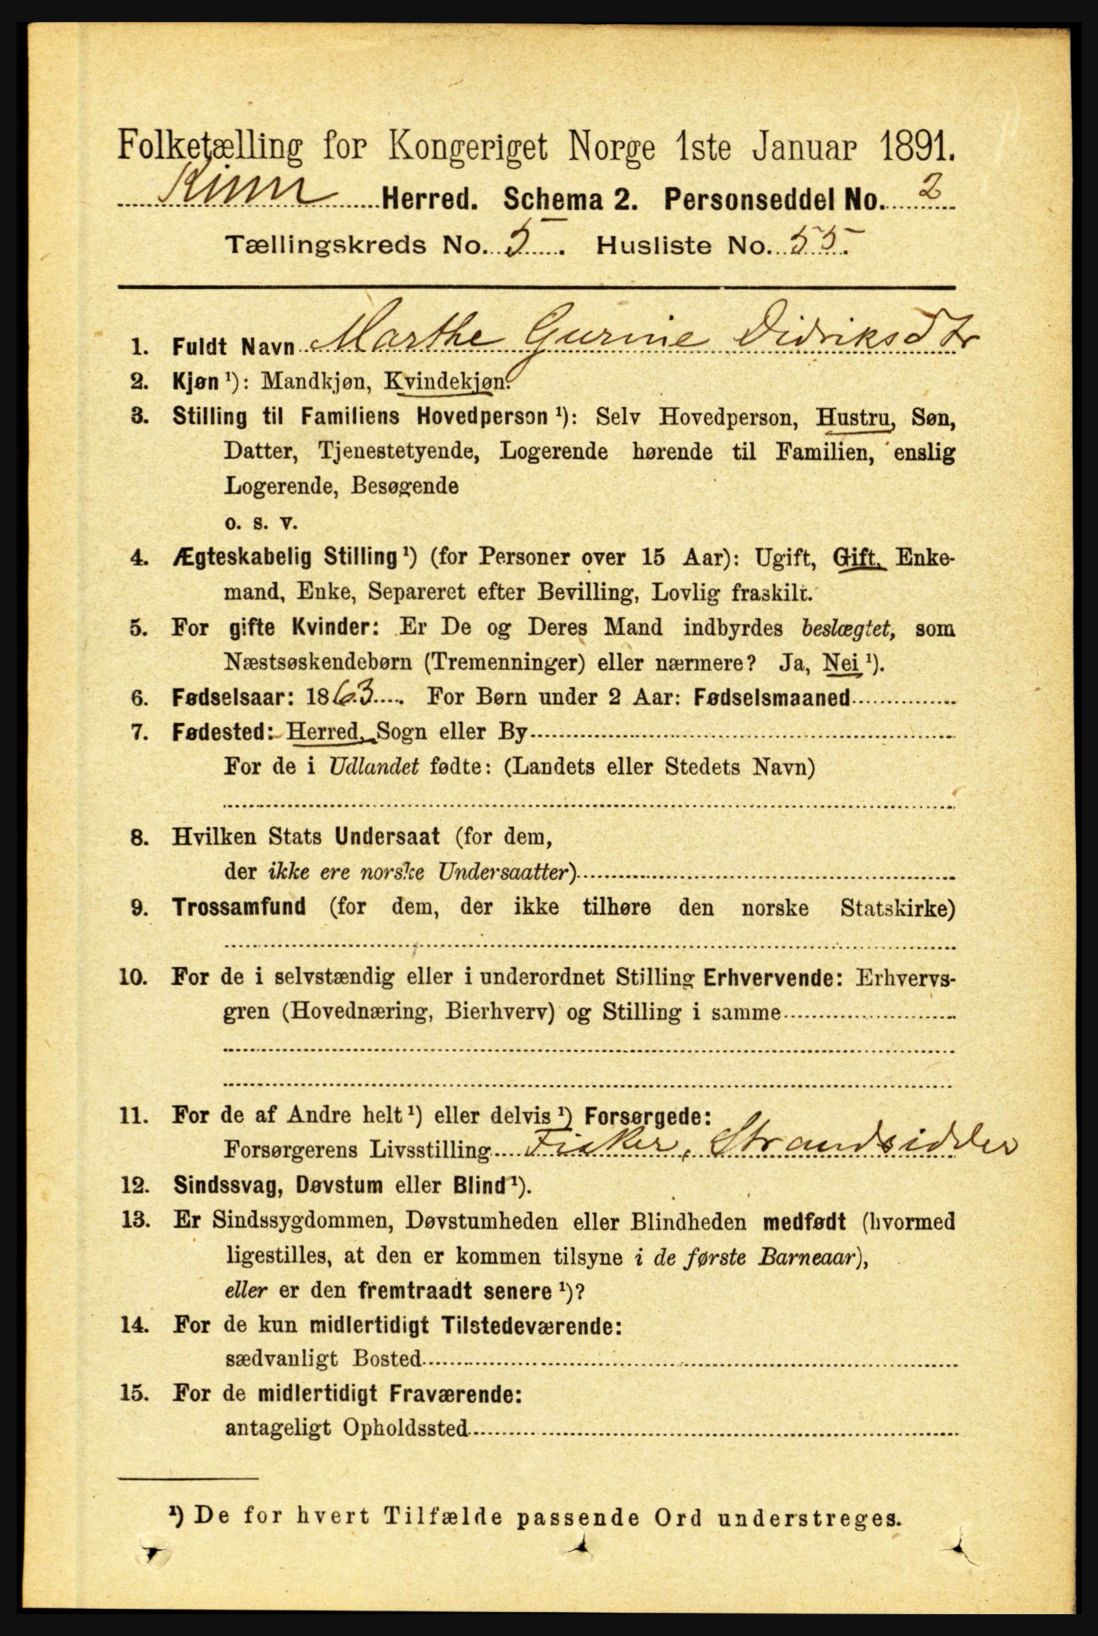 Folketælling for Kongeriget Norge 1ste Januar 1891.
Kinn Herred. Schema 2. Personseddel No. 2
Tællingskreds No. 5. Husliste No. 55.
1. Fuldt Navn Marthe Gurine Didriksdtr
2. Kjøn ¹): Mandkjøn, Kvindekjøn.
3. Stilling til Familiens Hovedperson ¹): Selv Hovedperson, Hustru, Søn,
Datter, Tjenestetyende, Logerende hørende til Familien, enslig
Logerende, Besøgende
o. s. v.
4. Ægteskabelig Stilling ¹) (for Personer over 15 Aar): Ugift, Gift, Enke-
mand, Enke, Separeret efter Bevilling, Lovlig fraskilt.
5. For gifte Kvinder: Er De og Deres Mand indbyrdes beslægtet, som
Næstsøskendebørn (Tremenninger) eller nærmere? Ja, Nei ¹).
6. Fødselsaar: 1863. For Børn under 2 Aar: Fødselsmaaned
7. Fødested: Herred, Sogn eller By
For de i Udlandet fødte: (Landets eller Stedets Navn)
8. Hvilken Stats Undersaat (for dem,
der ikke ere norske Undersaatter)
9. Trossamfund (for dem, der ikke tilhøre den norske Statskirke)
10. For de i selvstændig eller i underordnet Stilling Erhvervende: Erhvervs-
gren (Hovednæring, Bierhverv) og Stilling i samme
11. For de af Andre helt ¹) eller delvis ¹) Forsørgede:
Forsørgerens Livsstilling Fisker, Strandsidder
12. Sindssvag, Døvstum eller Blind ¹).
13. Er Sindssygdommen, Døvstumheden eller Blindheden medfødt (hvormed
ligestilles, at den er kommen tilsyne i de første Barneaar),
eller er den fremtraadt senere ¹)?
14. For de kun midlertidigt Tilstedeværende:
sædvanligt Bosted
15. For de midlertidigt Fraværende:
antageligt Opholdssted
¹) De for hvert Tilfælde passende Ord understreges.